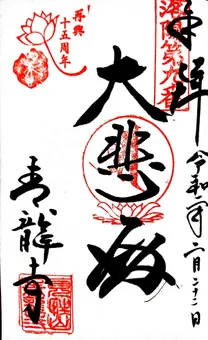 奉拝
洛陽第九番
令和二年二月二十二日
大悲殿
再興
十五周年
青龍寺